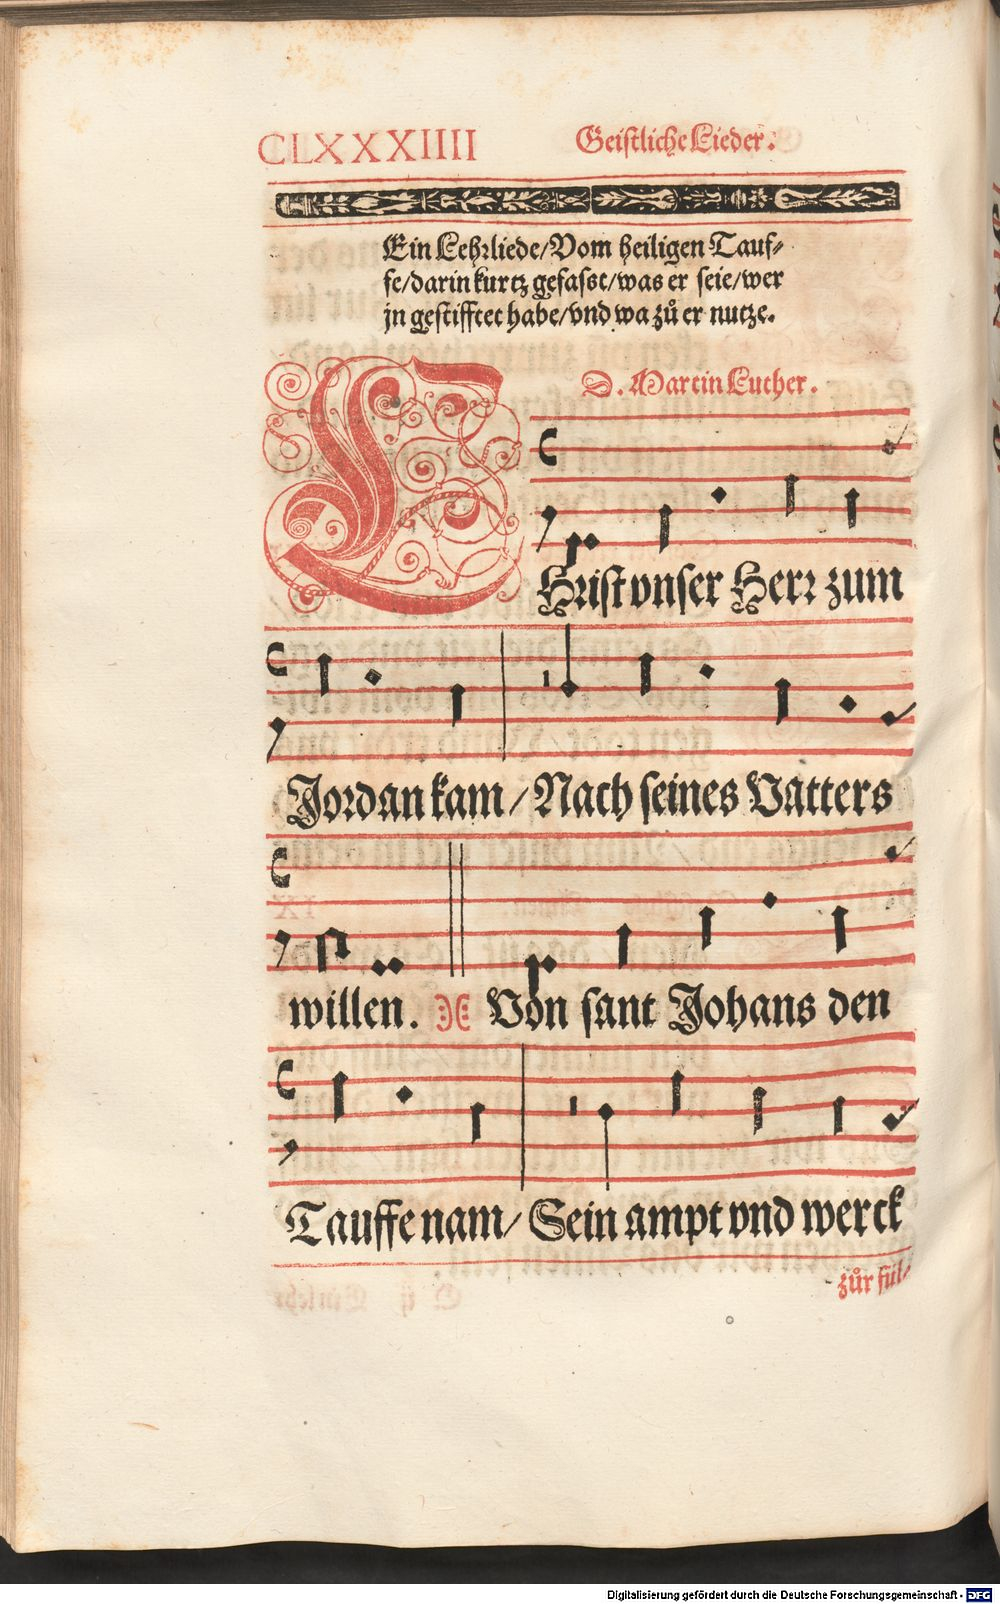 CLXXXIIII
Geistliche Lieder.
Ein Lehrliede/Vom heiligen Tauf-
fe/darin kurtz gefasst/was er seie/wer
jn gestifftet habe/vnd wa zů er nutze.
D. Martin Luther.
CHrist vnser Herr zum
Jordan kam/Nach seines Vatters
willen. Von sant Johans den
Tauffe nam/Sein ampt vnd werck
zůr fül-
Digitalisierung gefördert durch die Deutsche Forschungsgemeinschaft - DFG